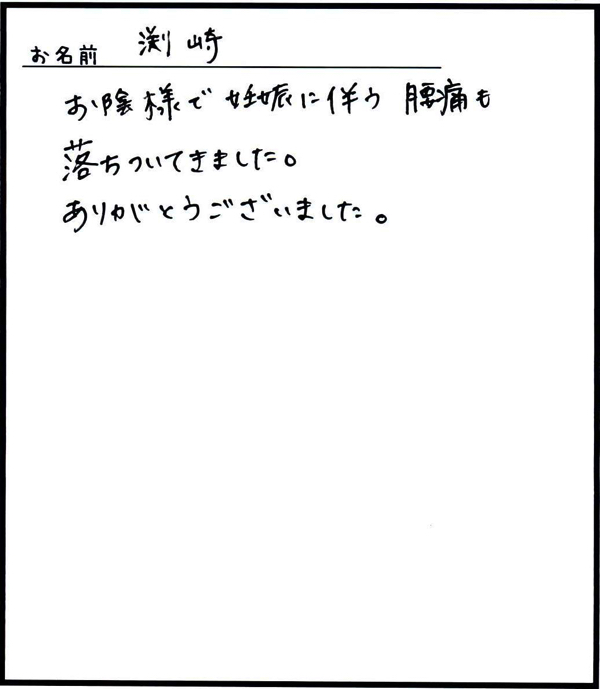 お名前 渕崎
お陰様で妊娠に伴う腰痛も
落ちついてきました。
ありがとうございました。